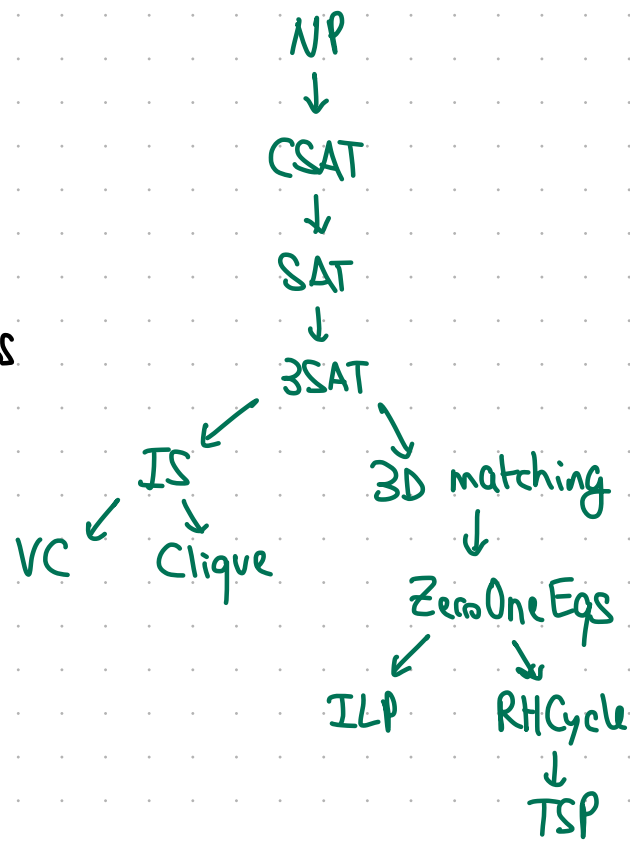 NP
CSAT
SAT
3SAT
IS
3D matching
VC
Clique
ZeroOneEqs
ILP
RHCycle
TSP